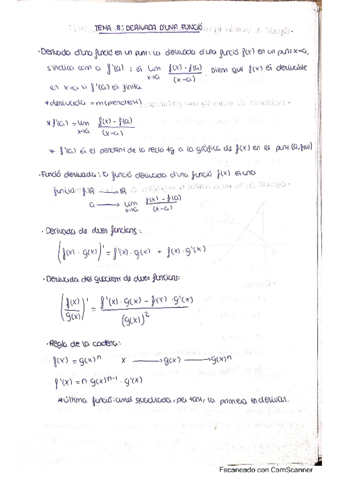 TEMA 8: DERIVADA D'UNA FUNCIÓ
·Derivada d'una funció en un punt: la derivada d'una funció f(x) en un punt x=a,
s'indica com a f'(a) i és lim x→a f(x) - f(a) / (x-a) Diem que f(x) és derivable
en x=a si f'(a) és finita
*derivada = m(pendent)
*f'(a) = lim x→a f(x) - f(a) / (x-a)
* f'(a) és el pendent de la recta tg a la gràfica de f(x) en el punt (a, f(a))
·Funció derivada: la funció derivada d'una funció f(x) és una
funció f: R → R
a → lim x→a f(x) - f(a) / (x-a)
·Derivada de dues funcions:
(f(x) · g(x))' = f'(x) · g(x) + f(x) · g'(x)
·Derivada del quocient de dues funcions:
(f(x) / g(x))' = f'(x) · g(x) - f(x) · g'(x) / (g(x))²
·Regla de la cadena:
f(x) = g(x)ⁿ x → g(x) → g(x)ⁿ
f'(x) = n g(x)ⁿ⁻¹ · g'(x)
*última funció: la primera en derivar.
Escaneado con CamScanner